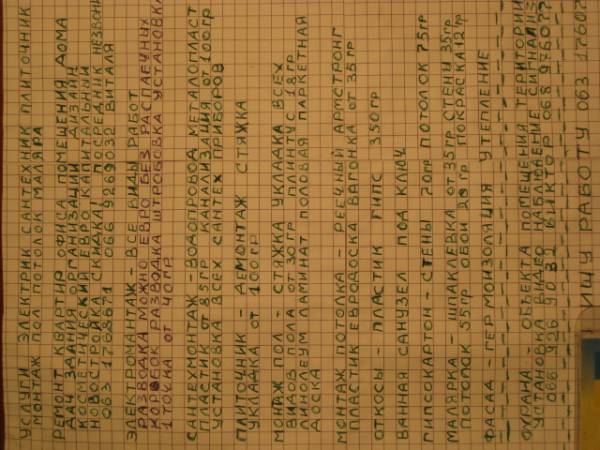 УСЛУГИ ЭЛЕКТРИК САНТЕХНИК ПЛИТОЧНИК
МОНТАЖ ПОЛ ПОТОЛОК МАЛЯРА
РЕМОНТ КВАРТИР ОФИСА ПОМЕЩЕНИЯ ДОМА
ДАЧ ЗДАНИЯ ОРГАНИЗАЦИЙ ДИЗАЙН
КОСМЕТИЧЕСКИЙ ЕВРО КАПИТРАЛЬНЫЙ
НОВОСТРОЙКА СКИДКА! ПОСРЕДНИК НЕЗВОНИ
063 1768671 066 9269032 ВИТАЛЯ
ЭЛЕКТРОМАНТАЖ - ВСЕ ВИДЫ РАБОТ
РАЗВОДКА МОЖНО ЕВРО БЕЗ РАСПАЕЧНЫХ
КОРОБЕК РАЗВОДКА ШТРОБОВКА УСТАНОВКА
1 ТОЧКА ОТ 40ГР
САНТЕХМОНТАЖ - ВОДОПРОВОД МЕТАЛОПЛАСТ
ПЛАСТИК ОТ 85ГР КАНАЛИЗАЦИЯ ОТ 100ГР
УСТАНОВКА ВСЕХ САНТЕХ ПРИБОРОВ
ПЛИТОЧНИК - ДЕМОНТАЖ СТЯЖКА
УКЛАДКА ОТ 100ГР
МОНАЖ ПОЛ - СТЯЖКА УКЛАДКА ВСЕХ
ВИДОВ ПОЛА ОТ 30ГР ПЛИНТУС 18ГР
ЛИНОЛЕУМ ЛАМИНАТ ПОЛОВАЯ ПАРКЕТНАЯ
ДОСКА
МОНТАЖ ПОТОЛКА - РЕЕЧНЫЙ АРМСТРОНГ
ПЛАСТИК ЕВРОДОСКА ВАГОНКА ОТ 35ГР
ОТКОСЫ - ПЛАСТИК ГИПС 350ГР
ВАННАЯ САНУЗЕЛ ПОД КЛЮЧ
ГИПСОКАРТОН - СТЕНЫ 70ГР ПОТОЛОК 75ГР
МАЛЯРКА - ШПАКЛЕВКА ОТ 35ГР СТЕНЫ 35ГР
ПОТОЛОК 55ГР ОБОИ 20ГР ПОКРАСКА 12ГР
ФАСАД - ГЕРМОИЗОЛЯЦИЯ УТЕПЛЕНИЕ
ОХРАНА - ОБЪЕКТА ПОМЕЩЕНИЯ ТЕРИТОРИИ
УСТАНОВКА ВИДЕО НАБЛЮДЕНИЕ
066 926 9032 ВИКТОР
ИЩУ РАБОТУ 063